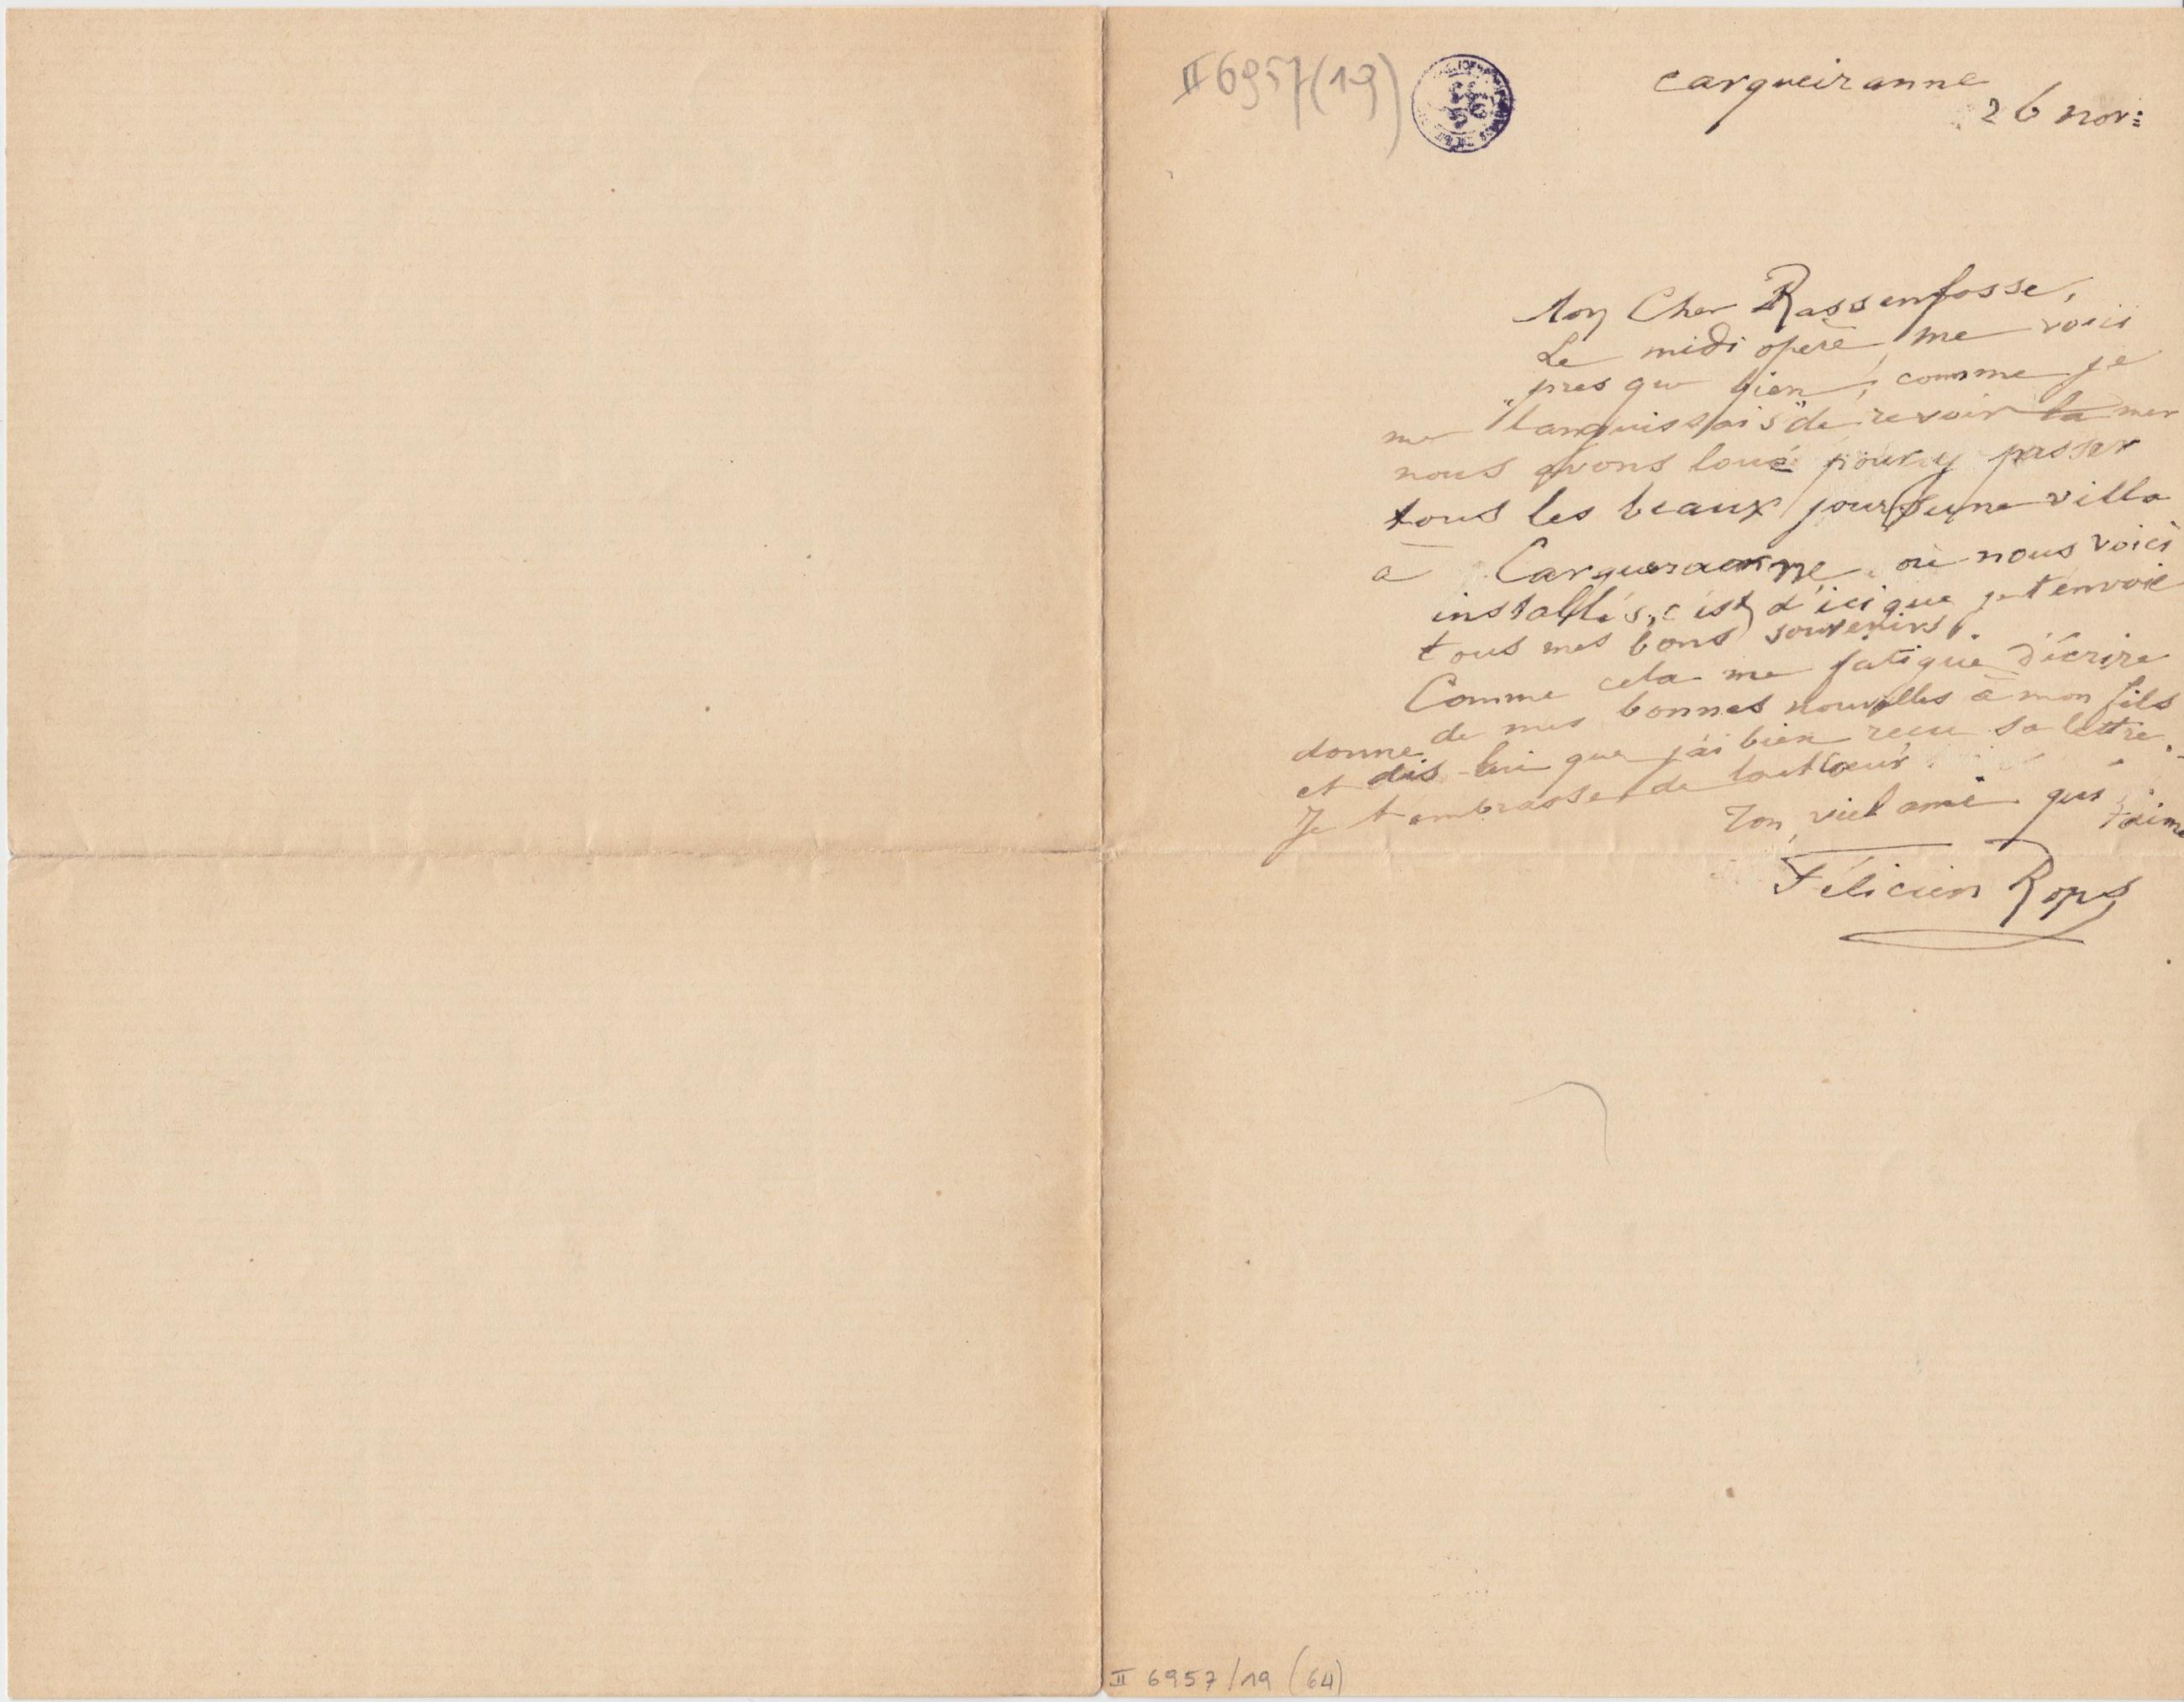 II 6957(19)
Carqueiranne
26 nov:
Mon Cher Rassenfosse,
Le midi opère, me voici
presque bien, comme je
me "languissais" de revoir la mer
nous avons loué pour y passer
tous les beaux jours une villa
à Carqueranne où nous voici
installés, c'est d'ici que je t'envoie
tous mes bons souvenirs.
Comme cela me fatigue d'écrire
donne de mes bonnes nouvelles à mon fils
et dis-lui que j'ai bien reçu sa lettre.
Je t'embrasse de tout cœur.
Ton vieil ami qui t'aime
Félicien Rops
II 6957/19 (64)